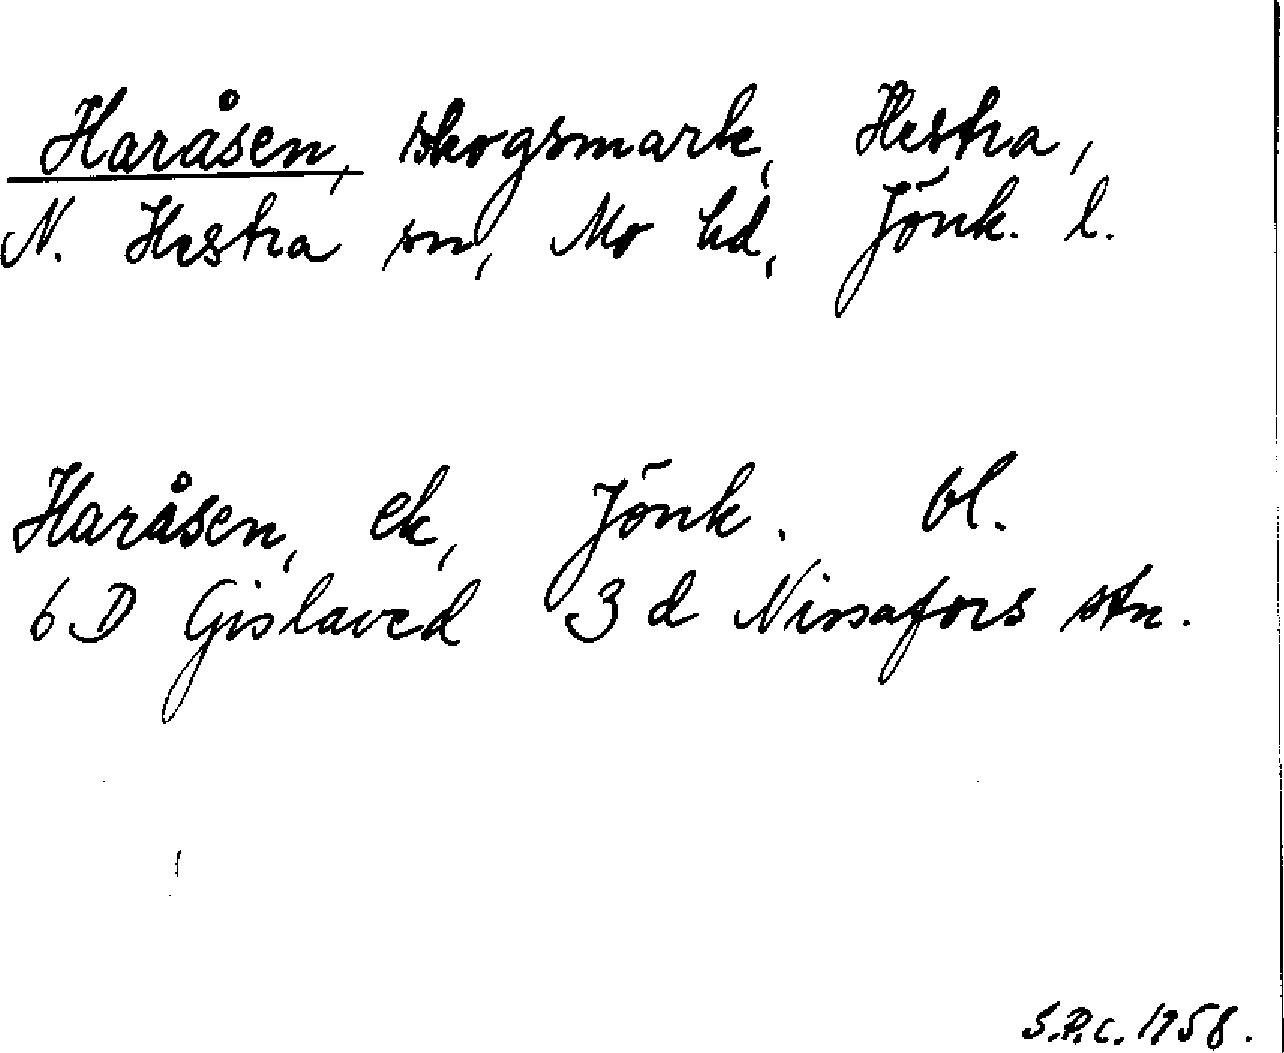 Haråsen, skogsmark, Hestra,
N. Hestra sn, Mo hd, Jönk. l.
Haråsen, ek, Jönk. bl.
6 D Gislaved 3 d Nissafors stn.
S.P.C. 1958.